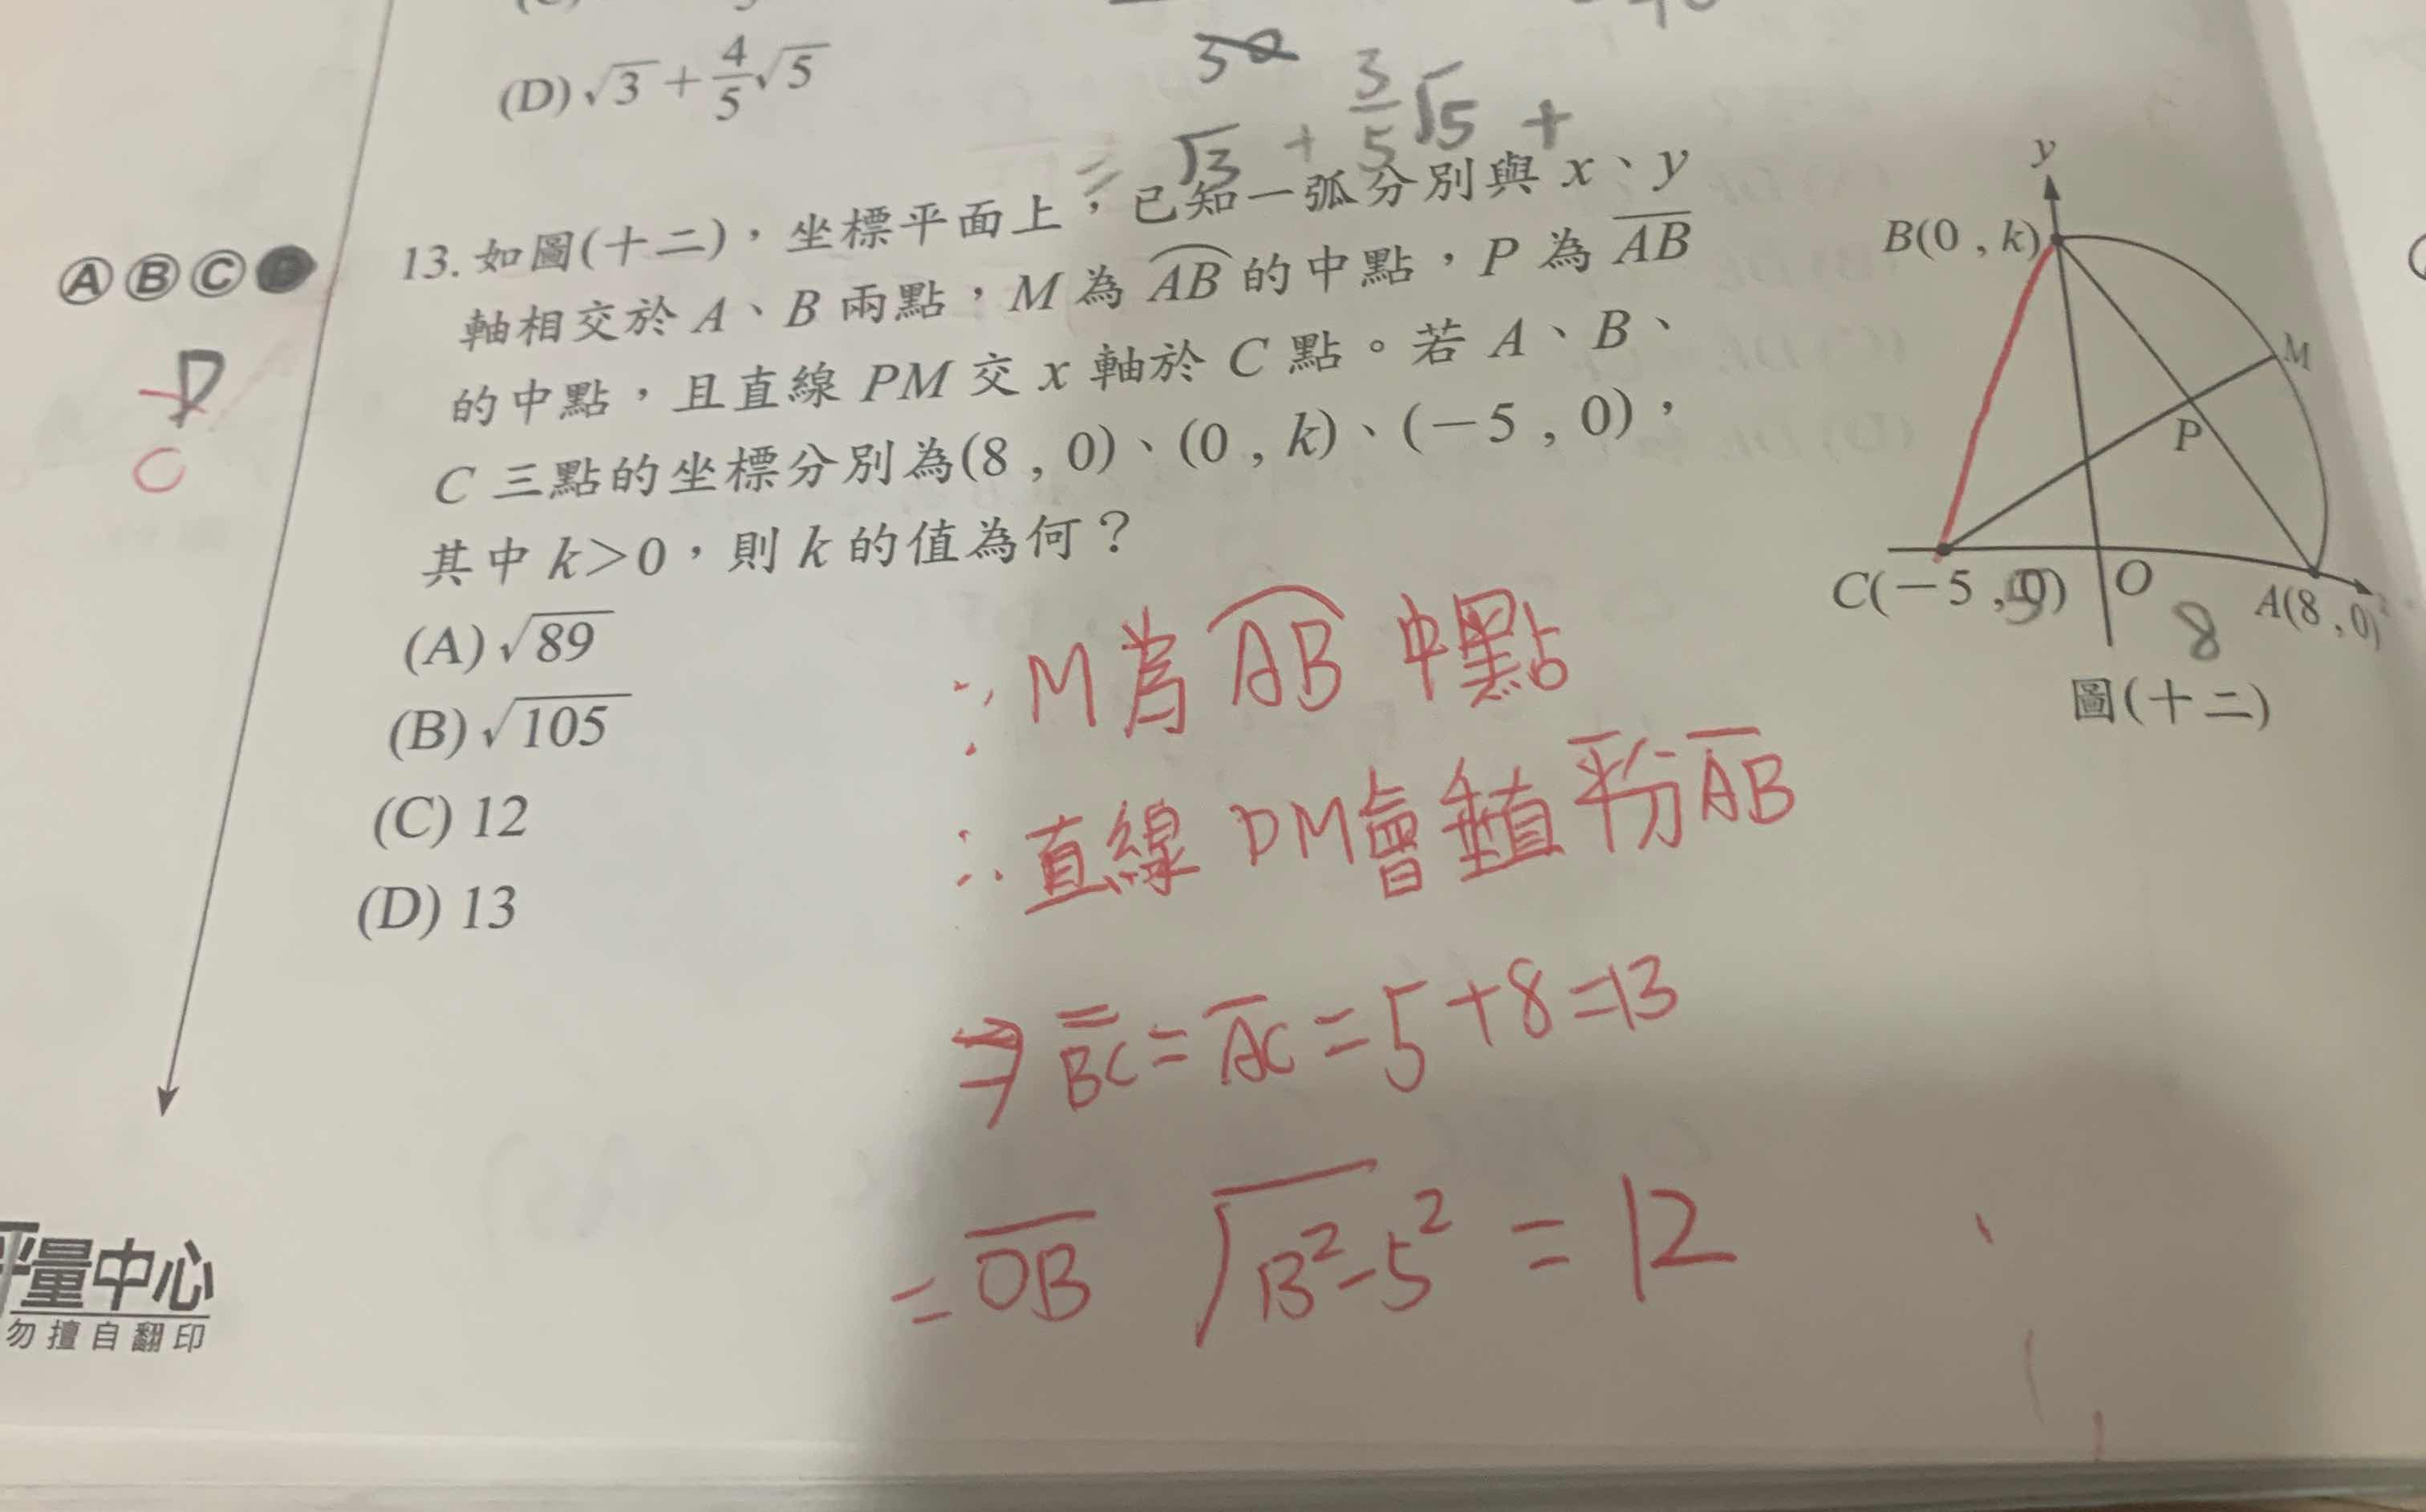 (D) √3 + 4/5 √5
= √3 + 3/5 √5 +
Ⓐ Ⓑ Ⓒ
D
C
13. 如圖(十二),坐標平面上,已知一弧分別與 x、y
軸相交於 A、B 兩點,M 為 \overset{⌢}{AB} 的中點,P 為 \overline{AB}
的中點,且直線 PM 交 x 軸於 C 點。若 A、B、
C 三點的坐標分別為(8 , 0)、(0 , k)、(-5 , 0),
其中 k>0,則 k 的值為何?
(A) √89
(B) √105
(C) 12
(D) 13
y
B(0 , k)
M
P
C(-5 , 0)
O
A(8 , 0)
8
圖(十二)
∵ M 為 \overset{⌢}{AB} 中點
∴ 直線 PM會垂直平分 \overline{AB}
⇒ \overline{BC} = \overline{AC} = 5 + 8 = 13
= \overline{OB} √13²-5² = 12
評量中心
勿擅自翻印